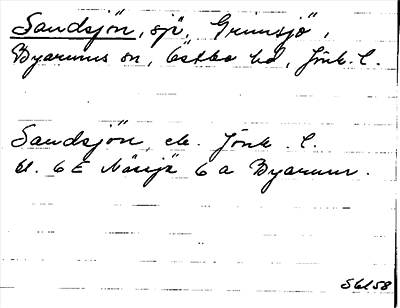 Sandsjön, sjö, Grimsjö,
Byarums sn, Östbo hd, Jönk. l.
Sandsjön, ek. Jönk. l.
bl. 6E Nässjö 6 a Byarum.
S6158